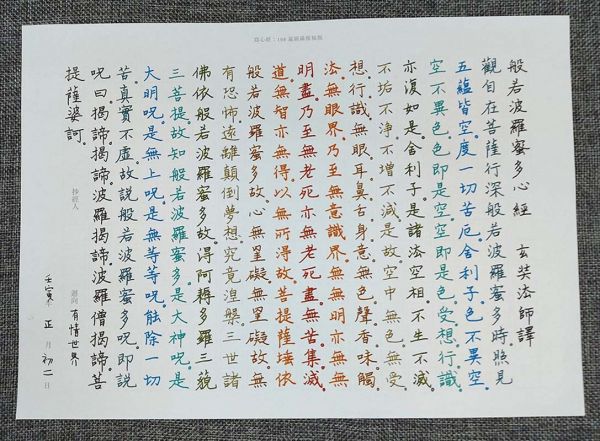 寫心經：108遍
般若波羅蜜多心經　玄奘法師譯
觀自在菩薩行深般若波羅蜜多時。照見
五蘊皆空。度一切苦厄。舍利子。色不異空。
空不異色。色即是空。空即是色。受想行識。
亦復如是。舍利子。是諸法空相。不生不滅。
不垢不淨。不增不減。是故空中無色。無受
想行識。無眼耳鼻舌身意。無色聲香味觸
法。無眼界。乃至無意識界。無無明。亦無無
明盡。乃至無老死。亦無老死盡。無苦集滅
道。無智亦無得。以無所得故。菩提薩埵。依
般若波羅蜜多故。心無罣礙。無罣礙故。無
有恐怖。遠離顛倒夢想。究竟涅槃。三世諸
佛。依般若波羅蜜多故。得阿耨多羅三藐
三菩提。故知般若波羅蜜多。是大神呪。是
大明呪。是無上呪。是無等等呪。能除一切
苦。真實不虛。故說般若波羅蜜多呪。即說
呪曰。揭諦。揭諦。波羅揭諦。波羅僧揭諦。菩
提薩婆訶。
抄經人
迴向 有情世界
壬寅年 正月初一日